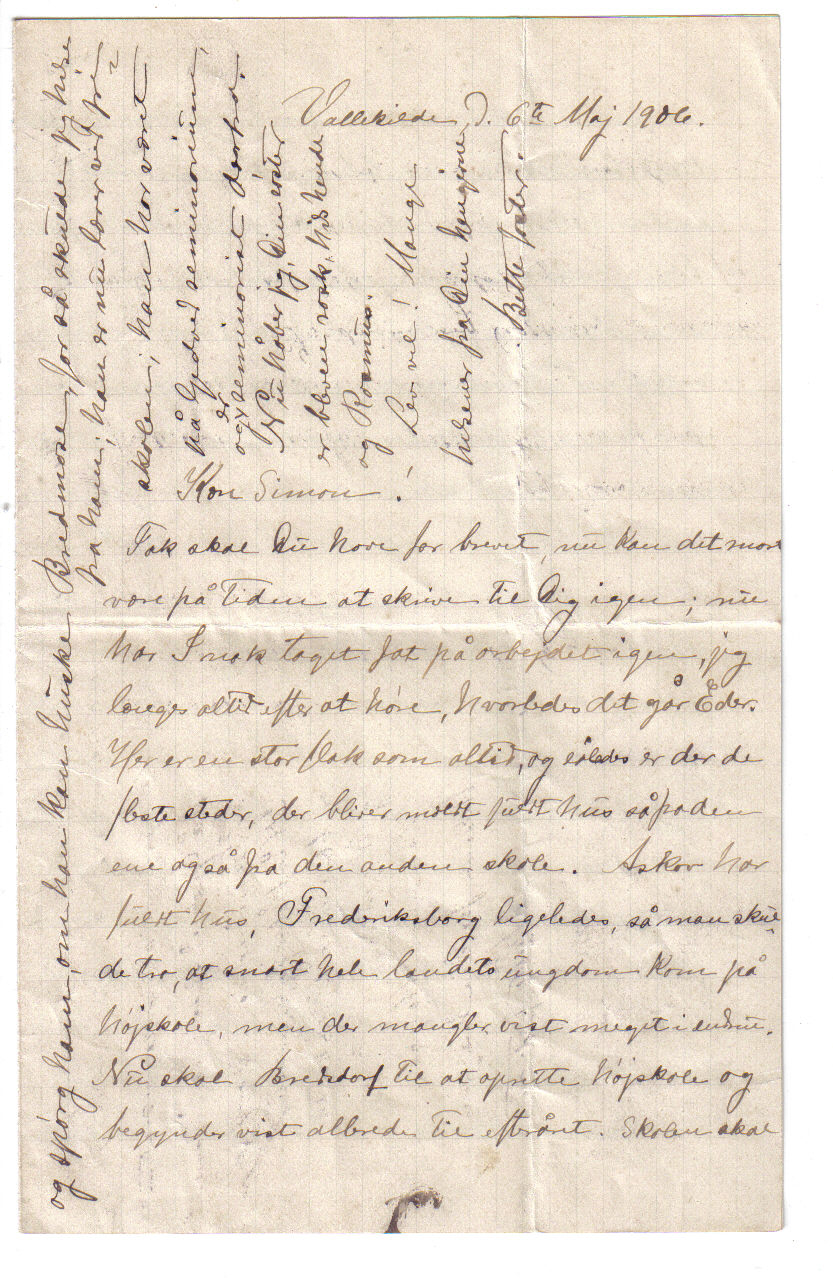 Vallekilde, d. 6te Maj 1906.
Kære Simon!
Tak skal Du have for brevet, nu kan det snart
være på tiden at skrive til Dig igen; nu
har I nok taget fat på arbejdet igen, jeg
længes altid efter at høre, hvorledes det går Eder.
Her er en stor flok som altid, og således er der de
fleste steder, der bliver meldt fuldt hus såpaden
ene også fra den anden skole. Askov har
fuldt hus, Frederiksborg ligeledes, så man skul-
de tro, at snart hele landets ungdom kom på
højskole, men der mangler vist meget i endnu.
Nu skal Bredsdorf til at oprette højskole og
begynder vist allerede til efteråret. Skolen skal
og spørg ham, om han kan huske Bredmose, for så skulde jeg hilse
fra ham; han er nu lærer ved fri-
skolen; han har været
på Gjedved seminarium
og er seminarist derfra.
Nu håber jeg, Din søster
er bleven rask, hils hende
og Rasmus.
Lev vel! Mange
hilsener fra Din hengivne
Bette faster.